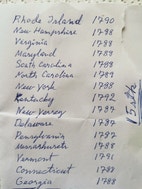 Rhode Island 1790
New Hampshire 1788
Virginia 1788
Maryland 1788
South Carolina 1788
North Carolina 1789
New York 1788
Kentucky 1792
New Jersey 1787
Delaware 1787
Pennsylvania 1787
Massachusets 1788
Vermont 1791
Connecticut 1788
Georgia 1788
15 sth